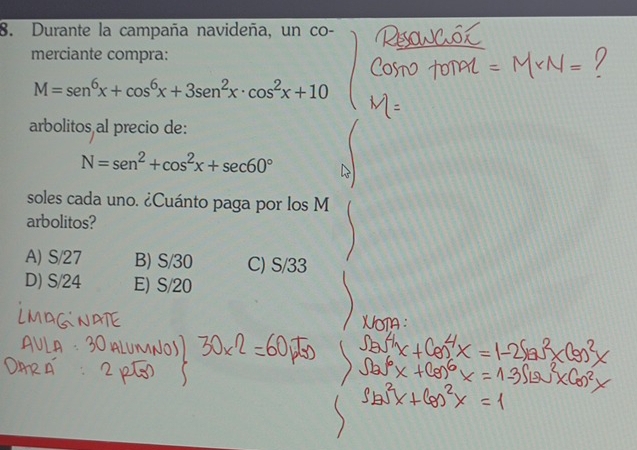 8. Durante la campaña navideña, un co-
merciante compra:
M = sen⁶x + cos⁶x + 3sen²x · cos²x + 10
arbolitos, al precio de:
N = sen² + cos²x + sec60°
soles cada uno. ¿Cuánto paga por los M
arbolitos?
A) S/27 B) S/30 C) S/33
D) S/24 E) S/20
IMAGINATE
AULA : 30 ALUMNOS } 30x2 = 60 ptos
DARÁ : 2 ptos
RESOLUCIÓN
COSTO TOTAL = M x N = ?
M =
NOTA:
Sen⁴x + Cos⁴x = 1-2Sen²x Cos²x
Sen⁶x + Cos⁶x = 1-3Sen²x Cos²x
Sen²x + Cos²x = 1